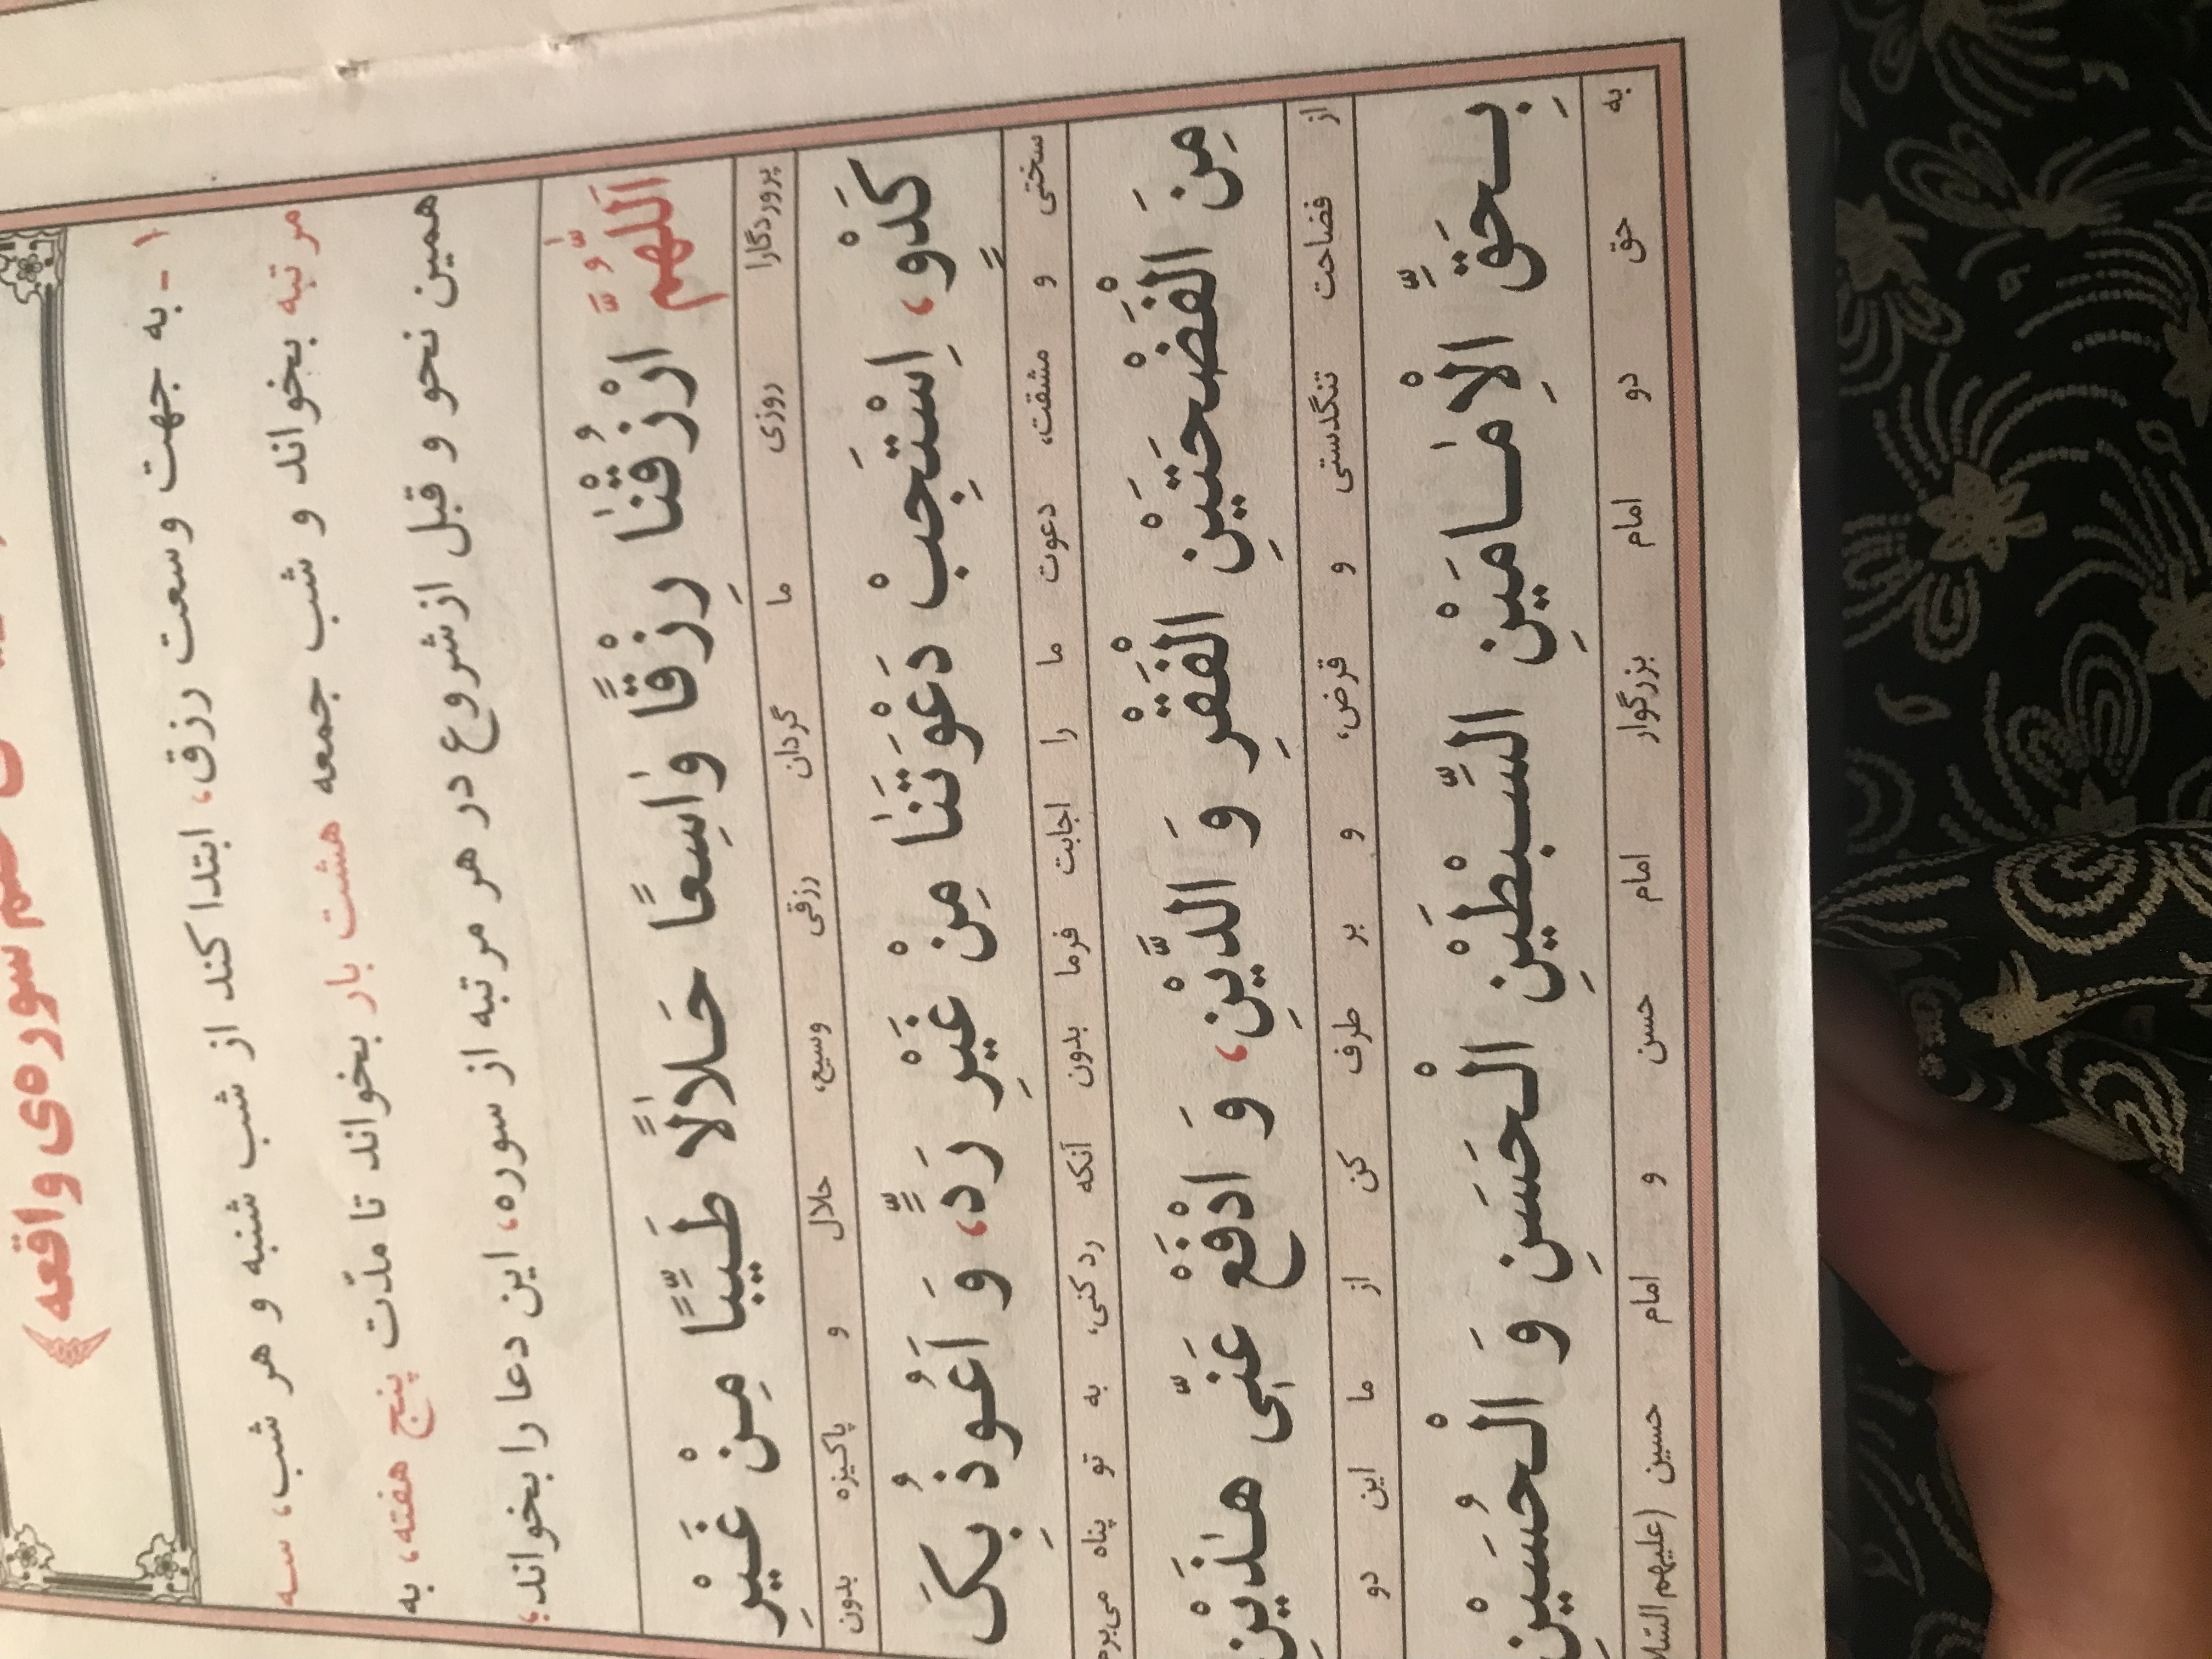 سوره‌ی واقعه ﴾
۱ - به جهت وسعت رزق، ابتدا کند از شب شنبه و هر شب، سه
مرتبه بخواند و شب جمعه هشت بار بخواند تا مدّت پنج هفته، به
همین نحو و قبل از شروع در هر مرتبه از سوره، این دعا را بخواند؛
اَللّٰهُمَّ ارْزُقْنٰا رِزْقًا وٰاسِعًا حَلاٰلًا طَیِّبًا مِنْ غَیْرِ
پروردگارا روزی ما گردان رزقی وسیع، حلال و پاکیزه بدون
کَدْوٍ، اِسْتَجِبْ دَعْوَتَنٰا مِنْ غَیْرِ رَدٍّ، وَ اَعُوذُ بِکَ
سختی و مشقت، دعوت ما را اجابت فرما بدون آنکه رد کنی، به تو پناه
مِنَ الْفَضْحَتَیْنِ الْفَقْرِ وَ الدَّیْنِ، وَ ادْفَعْ عَنّٖی هٰذَیْنِ
از فضاحت تنگدستی و قرض، و بر طرف کن از ما این دو
بِحَقِّ الْاِمٰامَیْنِ السِّبْطَیْنِ الْحَسَنِ وَ الْحُسَیْنِ
به حق دو امام بزرگوار امام حسن و امام حسین